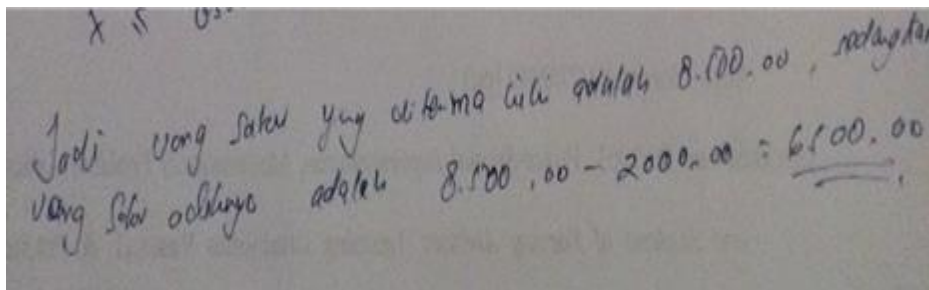 Jadi uang saku yang diterima Lili adalah 8.500,00, sedangkan
uang saku adiknya adalah 8.500,00 - 2000,00 = 6500,00